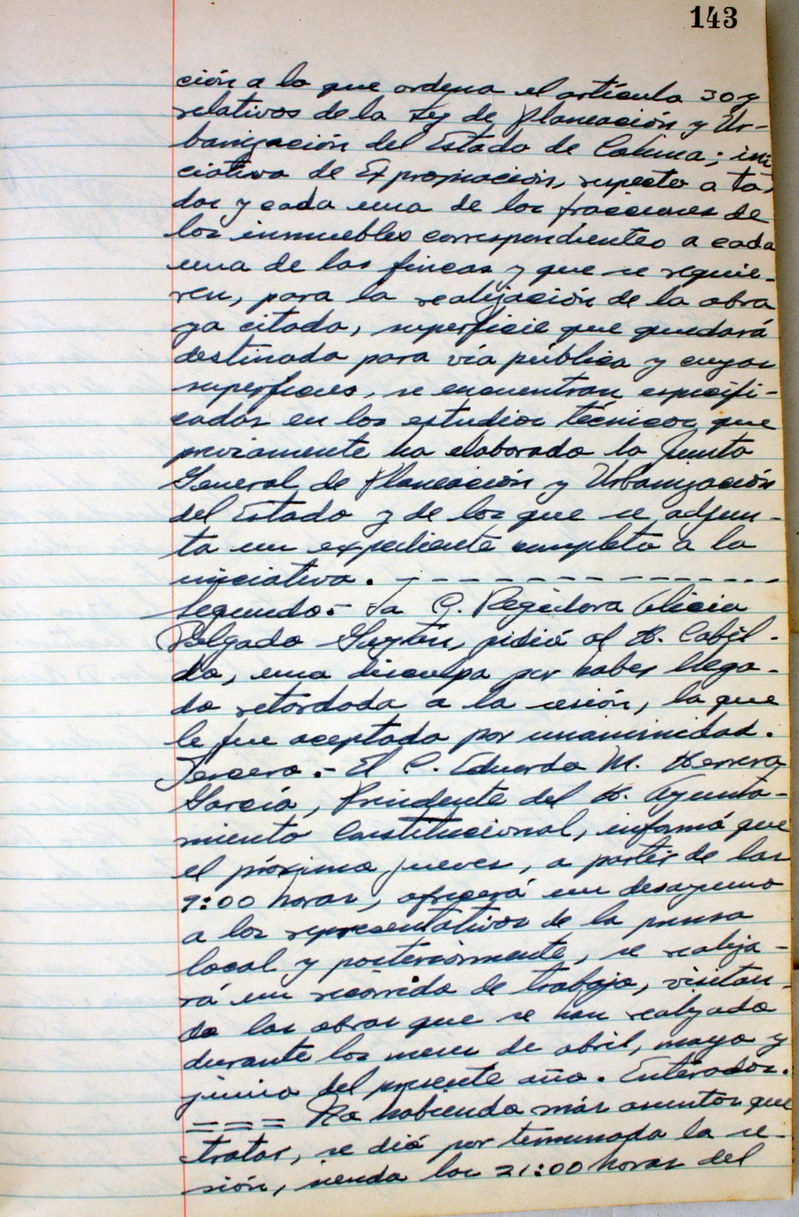 143
ción a lo que ordena el artículo 30 y
relativos de la Ley de Planeación y Ur-
banización del Estado de Colima; ini
ciativa de Expropiación, respecto a to-
das y cada una de las fracciones de
los inmuebles correspondientes a cada
una de las fincas y que se requie-
ren, para la realización de la obra
ya citada, superficie que quedará
destinada para vía pública y cuyas
superficies, se encuentran especifi-
cadas en los estudios técnicos que
previamente ha elaborado la Junta
General de Planeación y Urbanización
del Estado y de los que se adjun-
ta un expediente completo a la
iniciativa. - - - - - - - - - - - - -
Segundo.- La C. Regidora Alicia
Delgado Gaytán, pidió al H. Cabil-
do, una disculpa por haber llega-
do retardada a la sesión, la que
le fue aceptada por unanimidad.
Tercero.- El C. Eduardo M. Herrera
García, Presidente del H. Ayunta-
miento Constitucional, informó que
el próximo jueves, a partir de las
9:00 horas, ofrecerá un desayuno
a los representativos de la prensa
local y posteriormente, se realiza-
rá un recorrido de trabajo, visitan-
do las obras que se han realizado
durante los meses de abril, mayo y
junio del presente año. Enterados.
=== No habiendo más asuntos que
tratar, se dió por terminada la se-
sión, siendo las 21:00 horas del